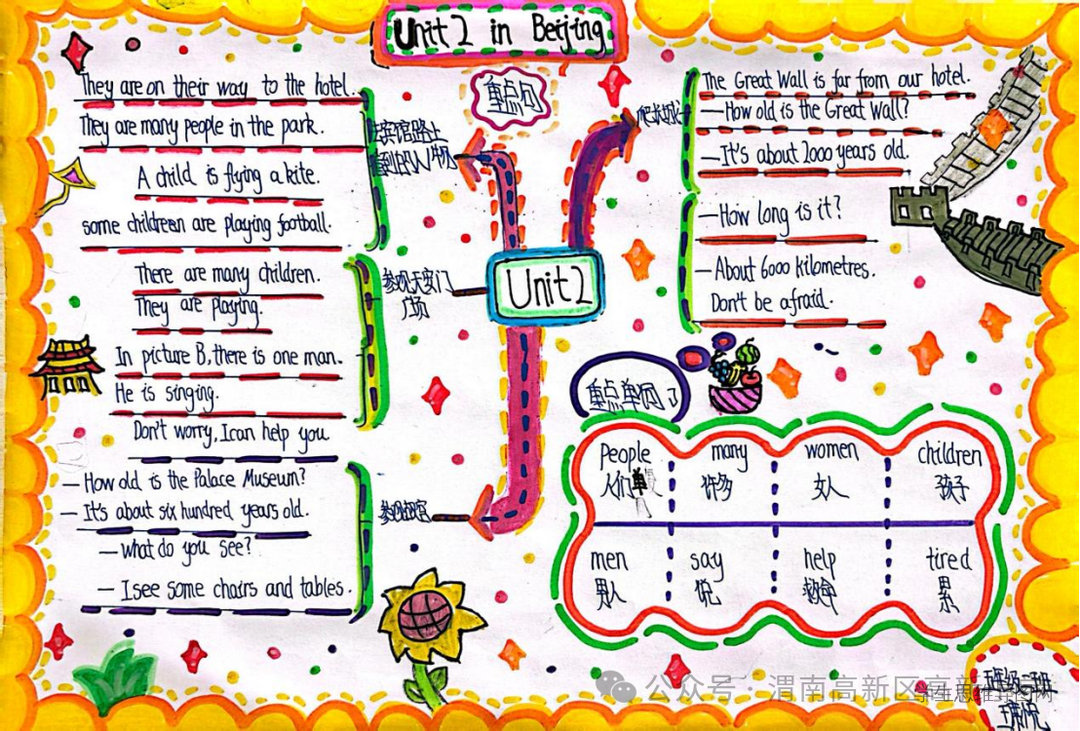 Unit 2 in Beijing
重点句
They are on their way to the hotel.
They are many people in the park.
A child is flying a kite.
some childreen are playing football.
宾馆路上
There are many children.
They are playing.
In picture B, there is one man.
He is singing.
Don't worry, I can help you
参观天安门
广场
How old is the Palace Museum?
It's about six hundred years old.
—what do you see?
—I see some chairs and tables.
参观故宫
Unit 2
爬长城
The Great Wall is far from our hotel.
—How old is the Great Wall?
—It's about 2000 years old.
—How long is it?
—About 6000 kilometres.
Don't be afraid.
重点单词
People many women children
人们 许多 女人 孩子
men say help tired
男人 说 累
公众号·渭南高新区